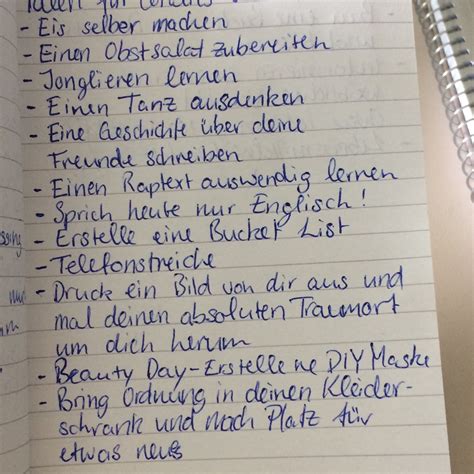 Ideen für
- Eis selber machen
- Einen Obstsalat zubereiten
- Jonglieren lernen
- Einen Tanz ausdenken
- Eine Geschichte über deine
Freunde schreiben
- Einen Raptext auswendig lernen
- Sprich heute nur Englisch!
- Erstelle eine Bucket List
- Telefonstreiche
- Drucke ein Bild von dir aus und
mal deinen absoluten Traumort
um dich herum
- Beauty Day - Erstelle ne DiY Maske
- Bring Ordnung in deinen Kleider-
schrank und mach Platz für
etwas neues